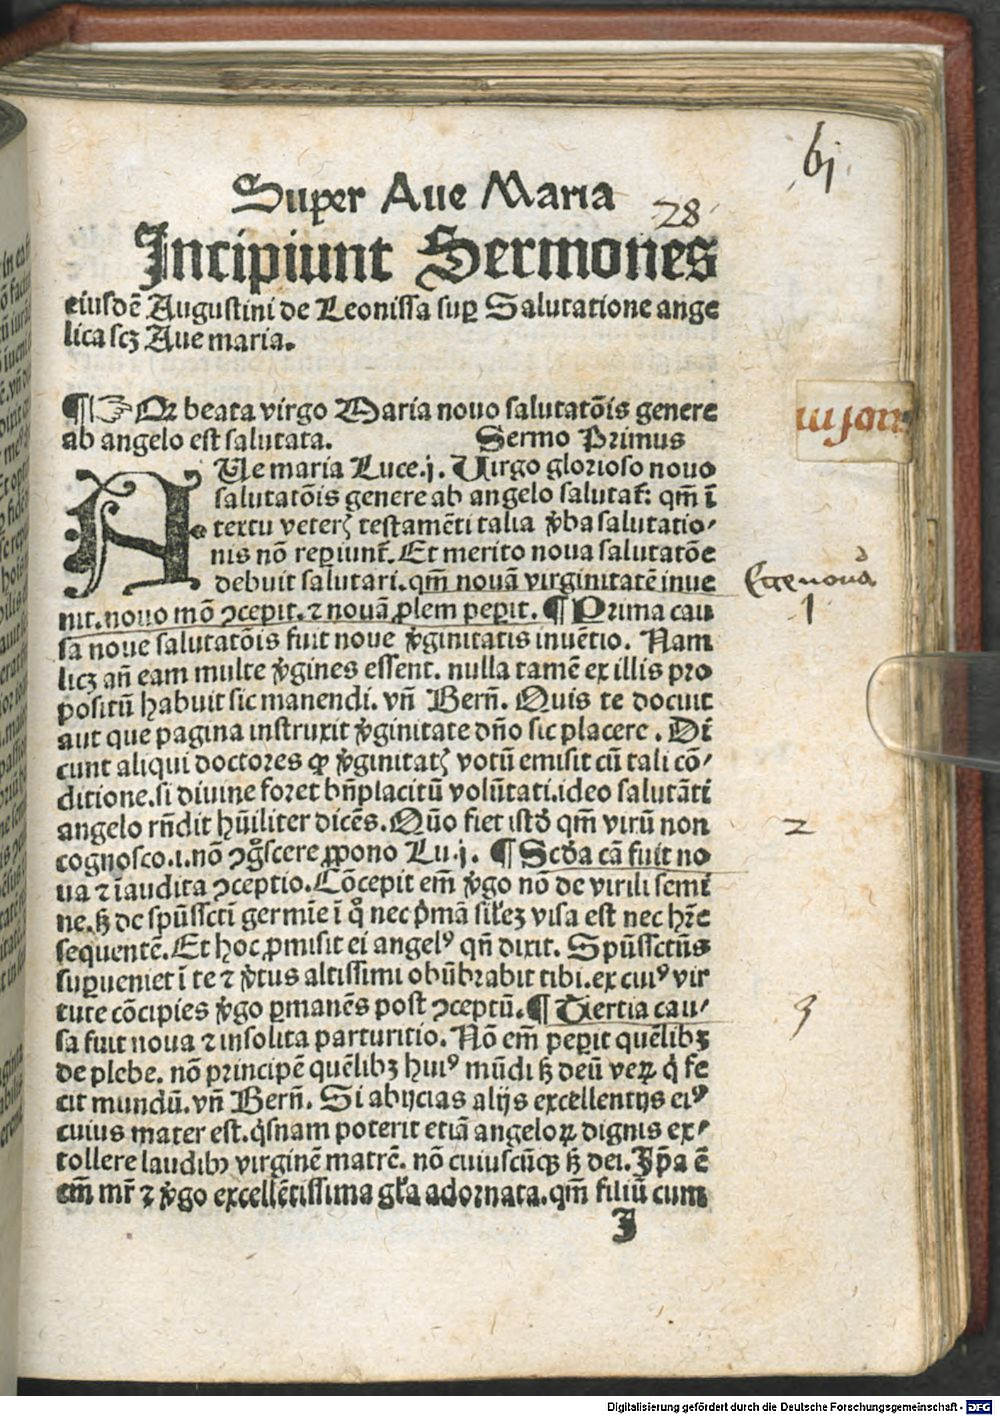 6j
Super Aue Maria
28
Incipiunt Sermones
eiusdē Augustini de Leonissa suꝑ Salutatione ange
lica scꝫ Aue maria.
¶ ☞ Qꝛ beata virgo Maria nouo salutatōis genere
ab angelo est salutata. Sermo Primus
AUe maria Luce.j. Uirgo glorioso nouo
salutatōis genere ab angelo salutat̄: qm̄ ī
textu veterꝭ testamēti talia v̄ba salutatio⸗
nis nō reꝑiunt̄. Et merito noua salutatōe
debuit salutari. qm̄ nouā virginitatē inue
nit. nouo mō ↄcepit. ⁊ nouā ꝓlem peꝑit. ¶ Prima cau
sa noue salutatōis fuit noue v̄ginitatis inuētio. Nam
licꝫ an̄ eam multe v̄gines essent. nulla tamē ex illis pro
positū habuit sic manendi. vn̄ Bern̄. Quis te docuit
aut que pagina instruxit v̄ginitate dn̄o sic placere. Di
cunt aliqui doctores ꝙ v̄ginitatꝭ votū emisit cū tali cō⸗
ditione. si diuine foret bn̄placitū volūtati. ideo salutāti
angelo rn̄dit hūiliter dicēs. Quō fiet istđ qm̄ virū non
cognosco .i. nō ↄgͦscere ꝓpono Lu.j. ¶ Scđa cā fuit no
ua ⁊ īaudita ↄceptio. Cōcepit em̄ v̄go nō de virili semi
ne. sꝫ de spūssctī germīe ī qͦ nec p̄mā sil̄eꝫ visa est nec hr̄e
sequentē. Et hoc ꝓmisit ei angelꝰ qn̄ dixit. Spūssctūs
suꝑueniet ī te ⁊ v̄tus altissimi obūbrabit tibi. ex cuiꝰ vir
tute cōcipies v̄go ꝑmanēs post ↄceptū. ¶ Tertia cau⸗
sa fuit noua ⁊ insolita parturitio. Nō em̄ peꝑit quēlibꝫ
de plebe. nō principē quēlibꝫ huiꝰ mūdi sꝫ deū veꝝ q̇ fe
cit mundū. vn̄ Bern̄. Si abijcias alijs excellentijs eiꝰ
cuius mater est. q̇snam poterit etiā angeloꝝ dignis ex⸗
tollere laudibꝰ virginē matrē. nō cuiuscūqꝫ sꝫ dei. Ip̄a ē
em̄ mr̄ ⁊ v̄go excellētissima gr̄a adornata. qm̄ filiū cum
J
Ecce noua
1
2
3
Digitalisierung gefördert durch die Deutsche Forschungsgemeinschaft - DFG